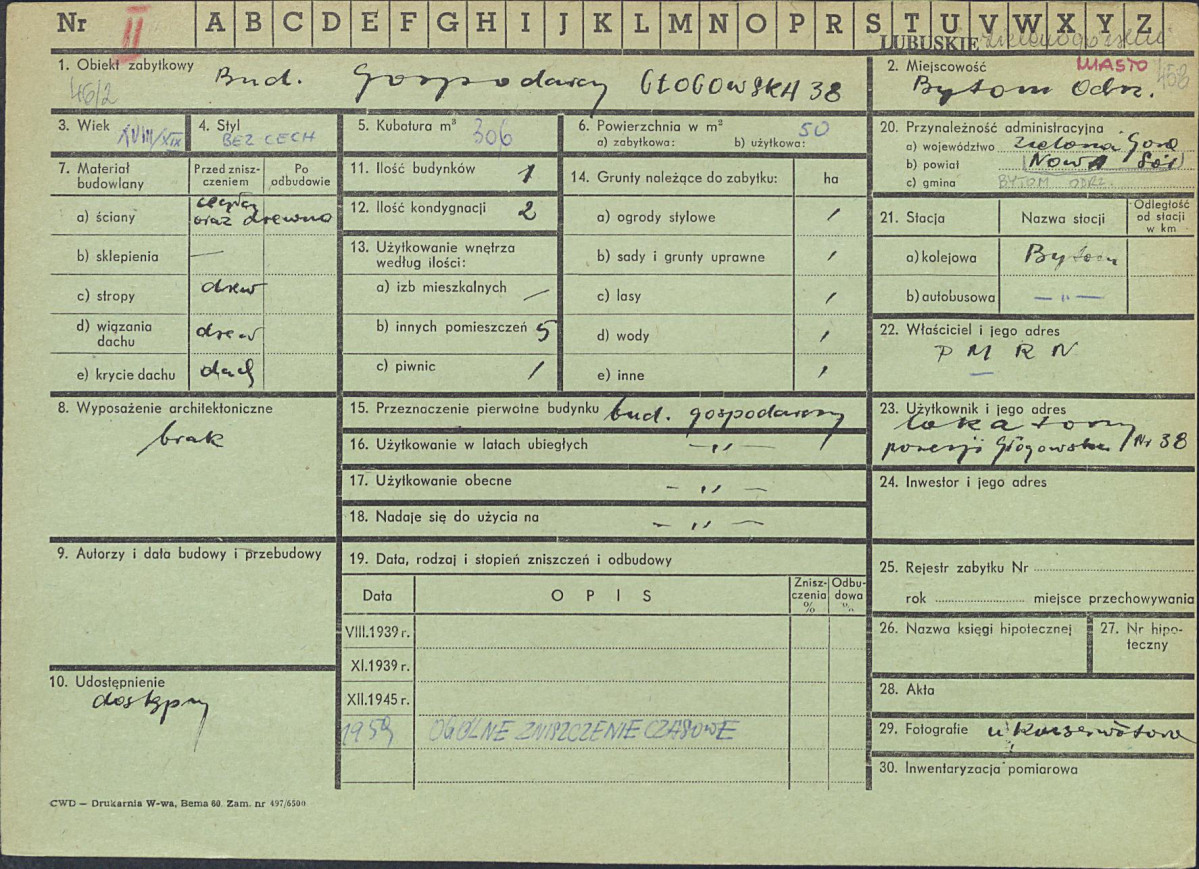 Nr II A B C D E F G H I J K L M N O P R S T U V W X Y Z
LUBUSKIE
1. Obiekt zabytkowy Bud. Gospodarczy GŁOGOWSKA 38
46/2
2. Miejscowość MIASTO 458
Bytom Odrz.
3. Wiek XVIII/XIX
4. Styl
BEZ CECH
5. Kubatura m³ 306
6. Powierzchnia w m² 50
a) zabytkowa: b) użytkowa:
20. Przynależność administracyjna
a) województwo Zielona Góra
b) powiat Nowa Sól
c) gmina BYTOM ODRZ.
7. Materiał budowlany
Przed zniszczeniem
Po odbudowie
a) ściany oraz drewno
b) sklepienia —
c) stropy drew
d) wiązania dachu drew
e) krycie dachu dach
11. Ilość budynków 1
12. Ilość kondygnacji 2
13. Użytkowanie wnętrza
według ilości:
a) izb mieszkalnych /
b) innych pomieszczeń 5
c) piwnic /
14. Grunty należące do zabytku: ha
a) ogrody stylowe /
b) sady i grunty uprawne /
c) lasy /
d) wody /
e) inne /
21. Stacja
Nazwa stacji
Odległość od stacji w km
a) kolejowa Bytom
b) autobusowa — „ —
22. Właściciel i jego adres
P M R N
8. Wyposażenie architektoniczne
brak
15. Przeznaczenie pierwotne budynku bud. gospodarczy
16. Użytkowanie w latach ubiegłych — „ —
17. Użytkowanie obecne — „ —
18. Nadaje się do użycia na — „ —
23. Użytkownik i jego adres
lokatorzy
posesji Głogowska Nr 38
24. Inwestor i jego adres
9. Autorzy i data budowy i przebudowy
19. Data, rodzaj i stopień zniszczeń i odbudowy
Data
OPIS
Zniszczenia %
Odbudowa %
VIII.1939 r.
XI.1939 r.
XII.1945 r.
1959 OGÓLNE ZNISZCZENIE CZASOWE
25. Rejestr zabytku Nr
rok miejsce przechowywania
26. Nazwa księgi hipotecznej
27. Nr hipoteczny
10. Udostępnienie
dostępny
28. Akta
29. Fotografie u Konserwatora
30. Inwentaryzacja pomiarowa
CWD – Drukarnia W-wa, Bema 60. Zam. nr 497/6500